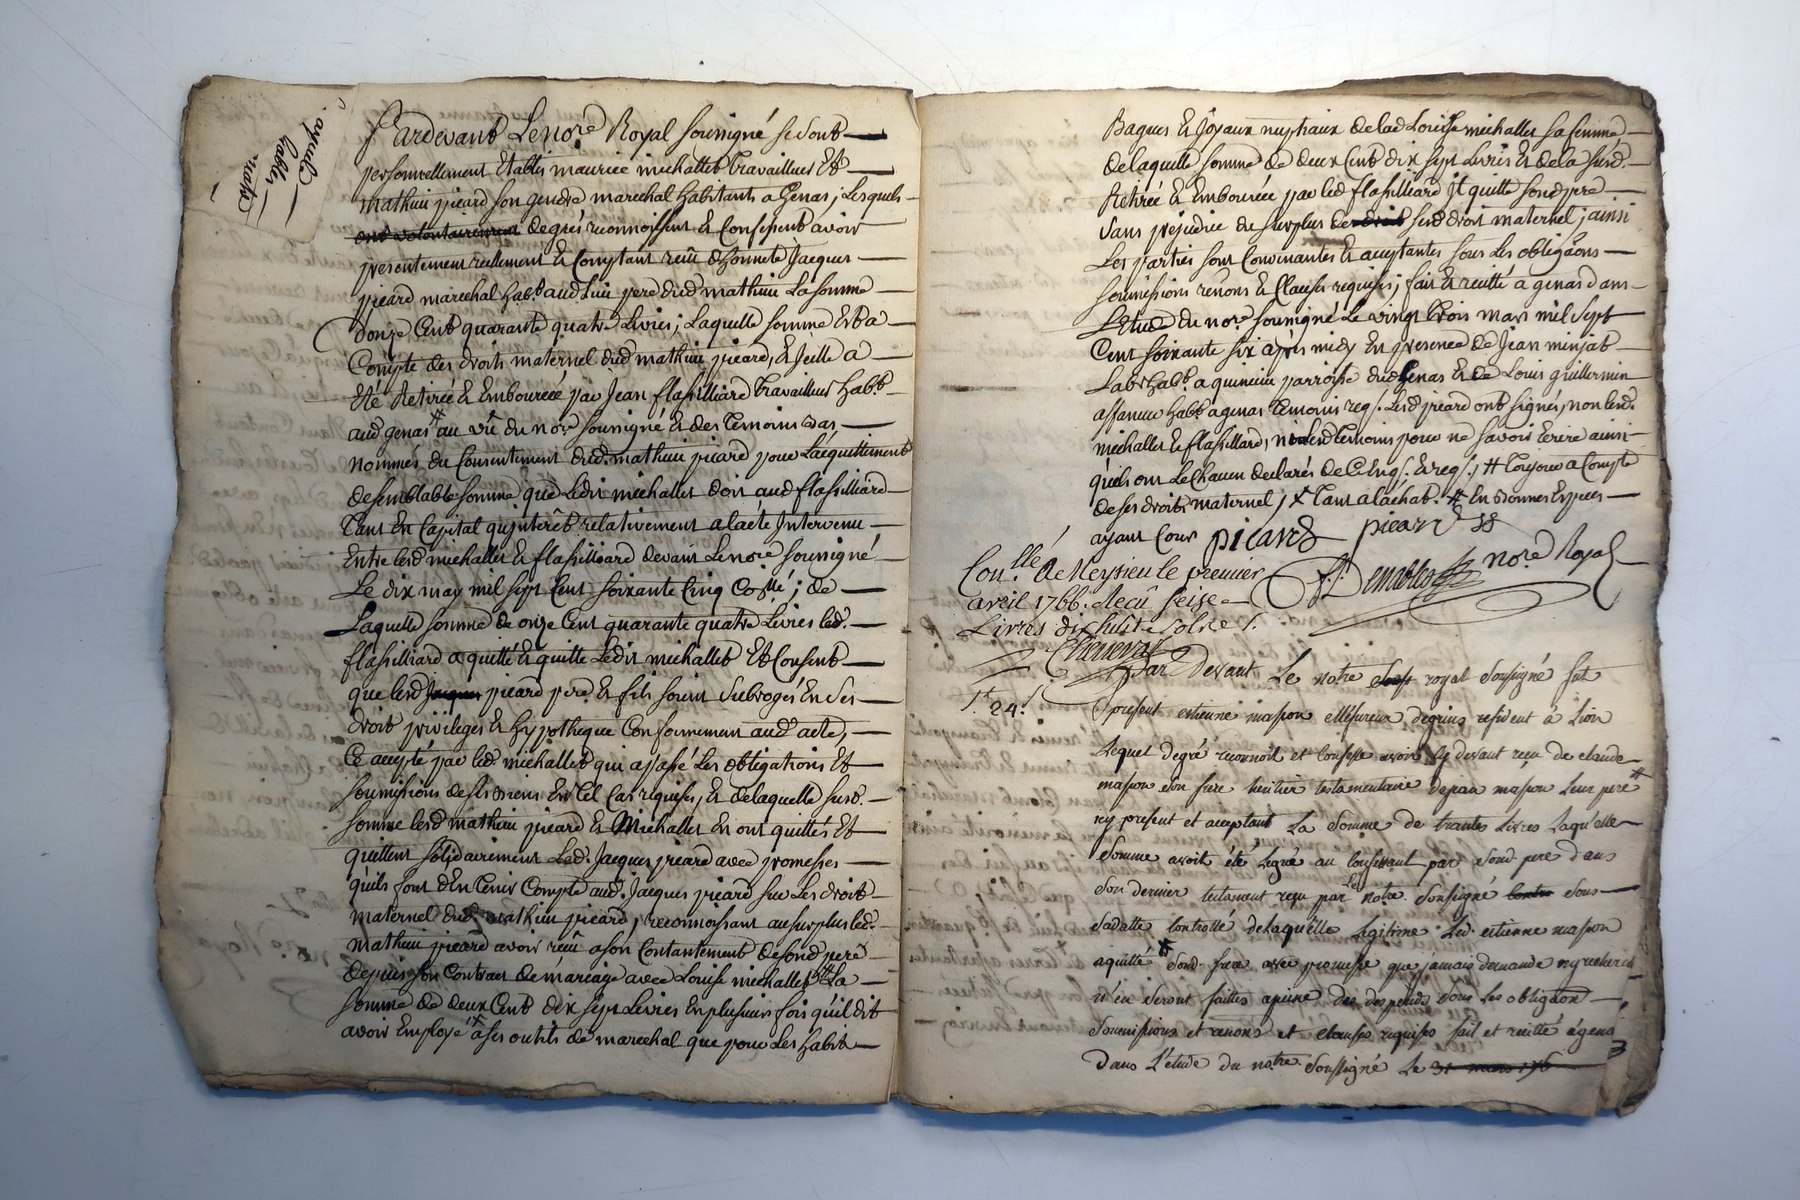 Pardevant Le no.re Royal soussigné se sont
personnellement Etablis maurice michallet travailleur Et
mathieu picard son gendre marechal habitants a Genas, Lesquels
ont volontairement de grés reconnoissent Et Confessent avoir
presentement reellement Et Comptant reçû d'honnete Jacques
picard marechal hab.t aud Lieu pere dud mathieu La somme
d'onze Cent quarante quatre Livres; Laquelle somme Est a
Compte des droits maternel dud mathieu picard, Et Icelle a
Eté Retirée Et Emboursée par Jean flassilliard travailleur hab.t
aud genas # au vû du no.re soussigné Et des temoins bas
nommés du Consentement dud. mathieu picard pour L'acquittement
de semblable somme que Ledit michallet doit aud flassilliard
tant En Capital qu'interêt relativement a lacte Intervenu
Entre lesd michallet Et flassilliard devant Le no.re soussigné
Le dix may mil sept Cent soixante Cinq Co.llé; de
Laquelle somme de onze Cent quarante quatre Livres led.
flassilliard a quitté Et quitte Ledit michallet Et Consent
que lesd Jacques picard pere Et fils soient subrogés En ses
droit privileges Et hypotheque Conformement aud.t acte,
Ce accepté par led. michallet qui a passé Les obligations Et
soumissions de ses biens En tel Cas requises, Et de laquelle susd.
somme lesd mathieu picard Et Michallet En ont quittés Et
quittent solidairement Led. Jacques picard avec promesses
qu'ils font d'En tenir Compte aud. Jacques picard sur Les droit
maternel dud. mathieu picard, reconnoissant au surplus led.
mathieu picard avoir reçû a son Contantement de sond pere
depuis son Contract de mariage avec Louise michallet # La
somme de deux Cent dix sept Livres En plusieurs fois qu'il dit
avoir Employé a ses outils de marechal que pour Les habit
Bagues Et Joyaux nuptiaux de lad Louise michallet sa femme
de laquelle somme de deux Cent dix sept Livres Et de la susd.
Retirée Et Emboursée par led flassilliard Il quitte sond pere
sans prejudice du surplus de droit sesd droit maternel; ainsi
Les parties sont Convenantes Et acceptantes sous Les obligãons
soumissions renons Et Clauses requises; fait Et recitté a genas dans
L'Etude du no.re soussigné Le vingt trois mars mil sept
Cent soixante six après midy En presence de Jean minjat
Lab.r hab.t a quincieu parroisse dud Genas Et de Louis guillermin
affaneur hab.t a genas temoins req/. Lesd picard ont signés, non lesd.
michallet Et flassillard, ni Lesd temoins pour ne savoir Ecrire ainsi
qu'ils ont Le Chacun declarés de Ce Enq/. Et req/., # toujour a Compte
de ses droits maternel, x tant a l'achat. # En bonnes Especes
ayant Cour picard picard
no.re Royal
Con.llé a Meysieu le premier
avril 1766. Recû seise
Livres dix huit sols
Par Devant Le notre Sous royal Sousigné fut
1.t 24.s
present estienne masson Mesureur degrins resident à Lion
Lequel degré reconnoit et confesse avoir cy devant reçu de claude
masson son frere heritier testamentaire de jean masson Leur pere #
icy present et acceptant La Somme de trante Livres Laquelle
Somme avoit été Legué au confessant par Sond. pere dans
Son dernier testament reçu par Le notre Sousigné Sous
Sadatte controllé de Laquelle Legitime Led. estienne masson
aquitte # Sond. frere avec promesse que jamais demande ny recherche
n'en Seront faittes a peine des despends Sous Les obligãon
Soumissions et renons et clauses requises fait et recitté a genas
Dans L'étude du notre Soussigné Le 31 mars 176